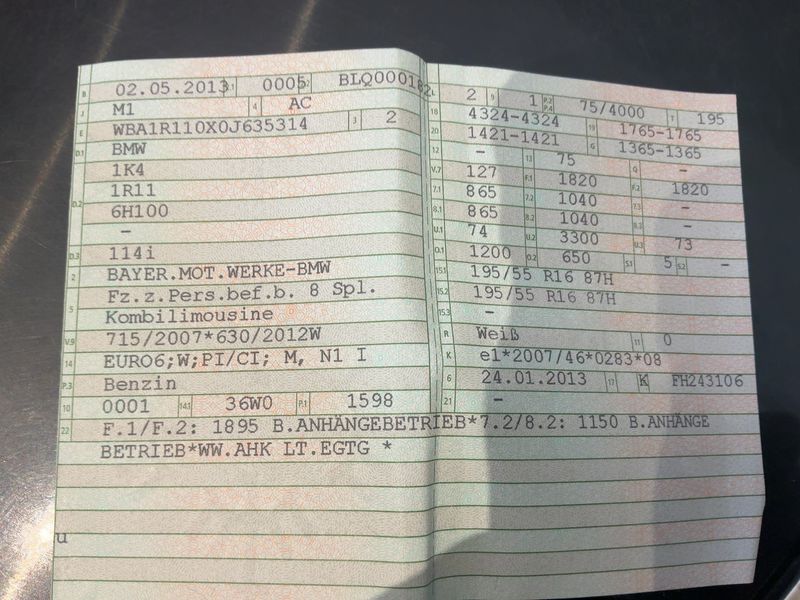 B 02.05.2013 2.1 0005 2.2 BLQ000182
J M1 4 AC
E WBA1R110X0J635314 3 2
D.1 BMW
1K4
1R11
D.2 6H100
-
D.3 114i
2 BAYER.MOT.WERKE-BMW
5 Fz.z.Pers.bef.b. 8 Spl.
Kombilimousine
V.9 715/2007*630/2012W
14 EURO6;W;PI/CI; M, N1 I
P.3 Benzin
10 0001 14.1 36W0 P.1 1598
L 2 9 1 P.2 P.4 75/4000 T 195
18 4324-4324 19 1765-1765
20 1421-1421 G 1365-1365
12 - 13 75 Q -
V.7 127 F.1 1820 F.2 1820
7.1 865 7.2 1040 7.3 -
8.1 865 8.2 1040 8.3 -
U.1 74 U.2 3300 U.3 73
O.1 1200 O.2 650 S.1 5 S.2 -
15.1 195/55 R16 87H
15.2 195/55 R16 87H
15.3 -
R Weiß 11 0
K e1*2007/46*0283*08
6 24.01.2013 17 K FH243106
21 -
22 F.1/F.2: 1895 B.ANHÄNGEBETRIEB*7.2/8.2: 1150 B.ANHÄNGE
BETRIEB*WW.AHK LT.EGTG *
u